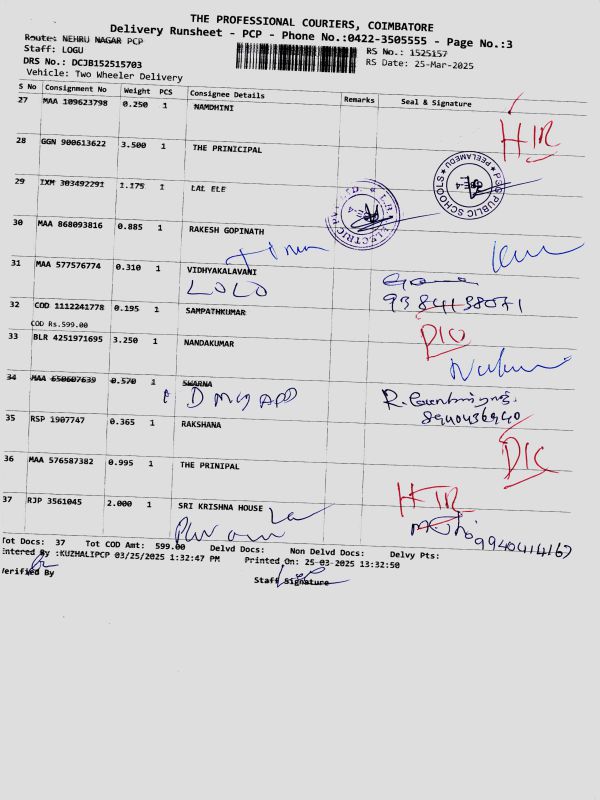 THE PROFESSIONAL COURIERS, COIMBATORE
Delivery Runsheet - PCP - Phone No.:0422-3505555 - Page No.:3
Route: NEHRU NAGAR PCP
Staff: LOGU
RS No.: 1525157
DRS No.: DCJB152515703
RS Date: 25-Mar-2025
Vehicle: Two Wheeler Delivery
S No Consignment No Weight PCS Consignee Details Remarks Seal & Signature
27 MAA 109623798 0.250 1 NAMDHINI
HIR
28 GGN 900613622 3.500 1 THE PRINICIPAL
PSG PUBLIC SCHOOLS ★ PEELAMEDU ★
29 IXM 303492291 1.175 1 LAL ELE
30 MAA 868093816 0.885 1 RAKESH GOPINATH
31 MAA 577576774 0.310 1 VIDHYAKALAVANI
LOLO
9384138071
32 COD 1112241778 0.195 1 SAMPATHKUMAR
COD Rs.599.00
33 BLR 4251971695 3.250 1 NANDAKUMAR
34 MAA 650607639 0.570 1 SWARNA
8940436940
35 RSP 1907747 0.365 1 RAKSHANA
36 MAA 576587382 0.995 1 THE PRINIPAL
HIR
37 RJP 3561045 2.000 1 SRI KRISHNA HOUSE
9940414167
Tot Docs: 37 Tot COD Amt: 599.00 Delvd Docs: Non Delvd Docs: Delvy Pts:
Entered By :KUZHALIPCP 03/25/2025 1:32:47 PM Printed On: 25-03-2025 13:32:50
Verified By
Staff Signature